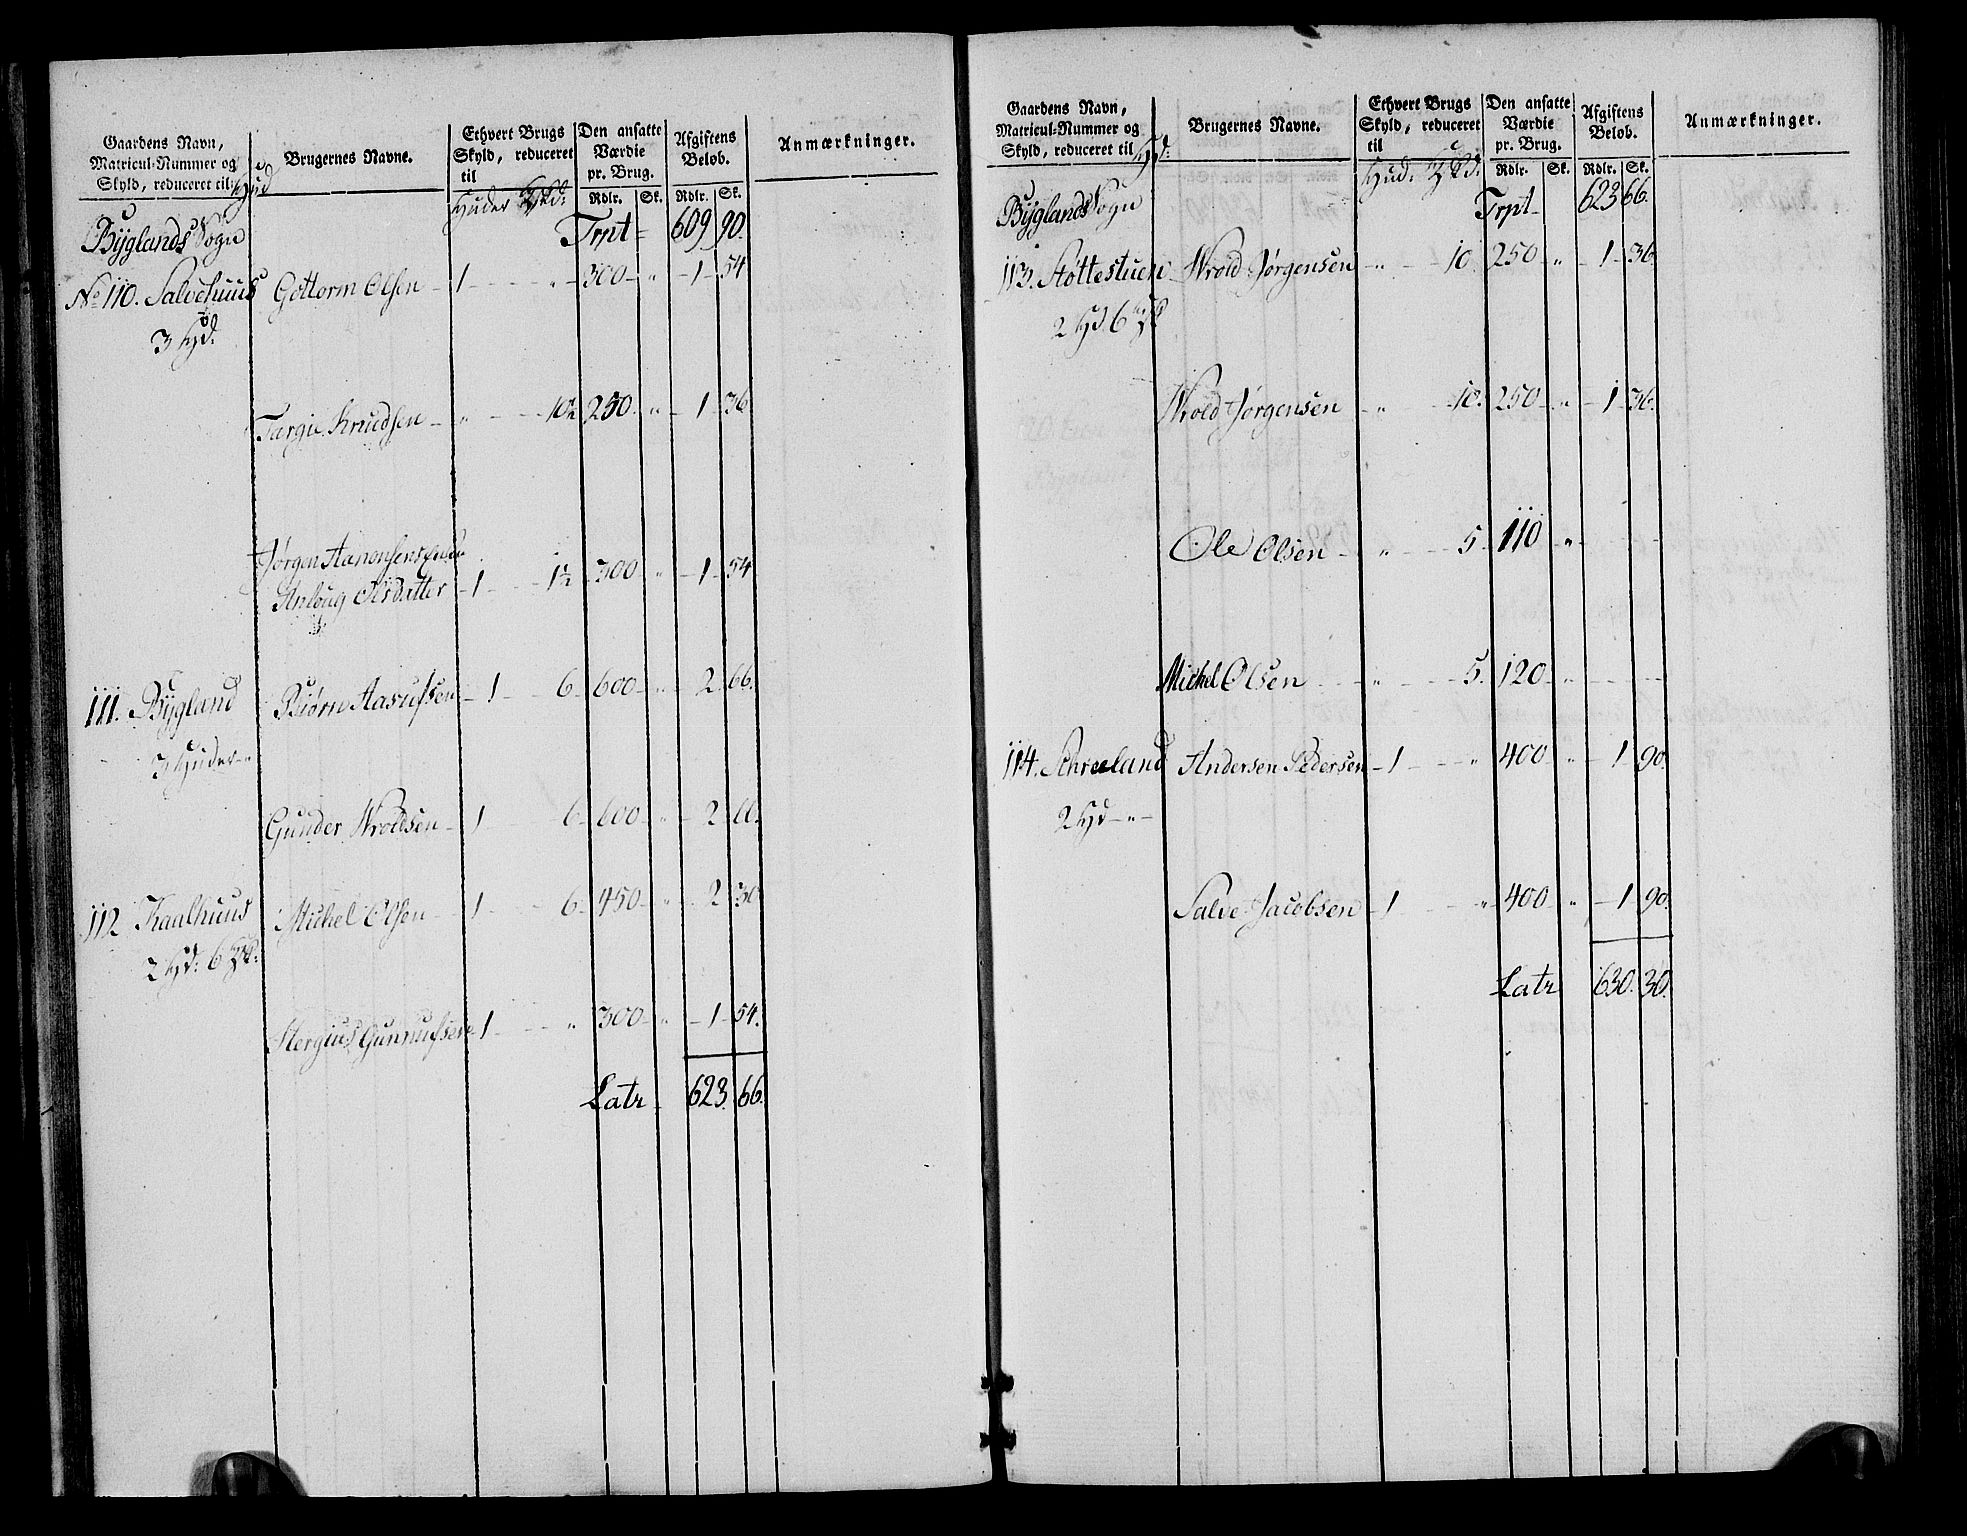 Gaardens Navn,
Matricul-Nummer og
Skyld, reduceret til Hud
Brugernes Navne.
Ethvert Brugs
Skyld, reduceret
til
Huder
Den ansatte
Værdie
pr. Brug.
Rdlr. Sk.
Afgiftens
Beløb.
Rdlr. Sk.
Anmærkninger.
Byglands Sogn Trpt 609 90.
No 110. Salvehuus Gottorm Olsen 1 " 300 " 1 54
3 Hud.
Targie Knudsen " 10½ 250 " 1 36
Jørgen Aanonsens
Anloug Olsdatter 1 1½ 300 " 1 54
111. Bygland Biørn Aasulfsen 1 6 600 " 2 66.
3 Huder "
Gunder Wroldsen 1 6 600 " 2 66.
112 Kaalhuus Michel Olsen 1 6 450 " 2 30
2 Hd: 6
Stergius Gunnulfsen 1 " 300 " 1 54.
Latr 623. 66.
Gaardens Navn,
Matricul-Nummer og
Skyld, reduceret til Hd:
Brugernes Navne.
Ethvert Brugs
Skyld, reduceret
til
Hud.
Den ansatte
Værdie
pr. Brug.
Rdlr. Sk.
Afgiftens
Beløb.
Rdlr. Sk.
Anmærkninger.
Byglands Sogn Trpt 623 66.
113. Støttestuen Wrold Jørgensen " 10. 250 " 1 36.
2 Hd. 6
Wrold Jørgensen " 10. 250 " 1 36.
Ole Olsen " 5. 110 "
Michel Olsen " 5. 120 "
114. Schreeland Andersen Pedersen 1 " 400 " 1 90.
2 Hd "
Salve Jacobsen 1 " 400 " 1 90.
Latr 630. 30.